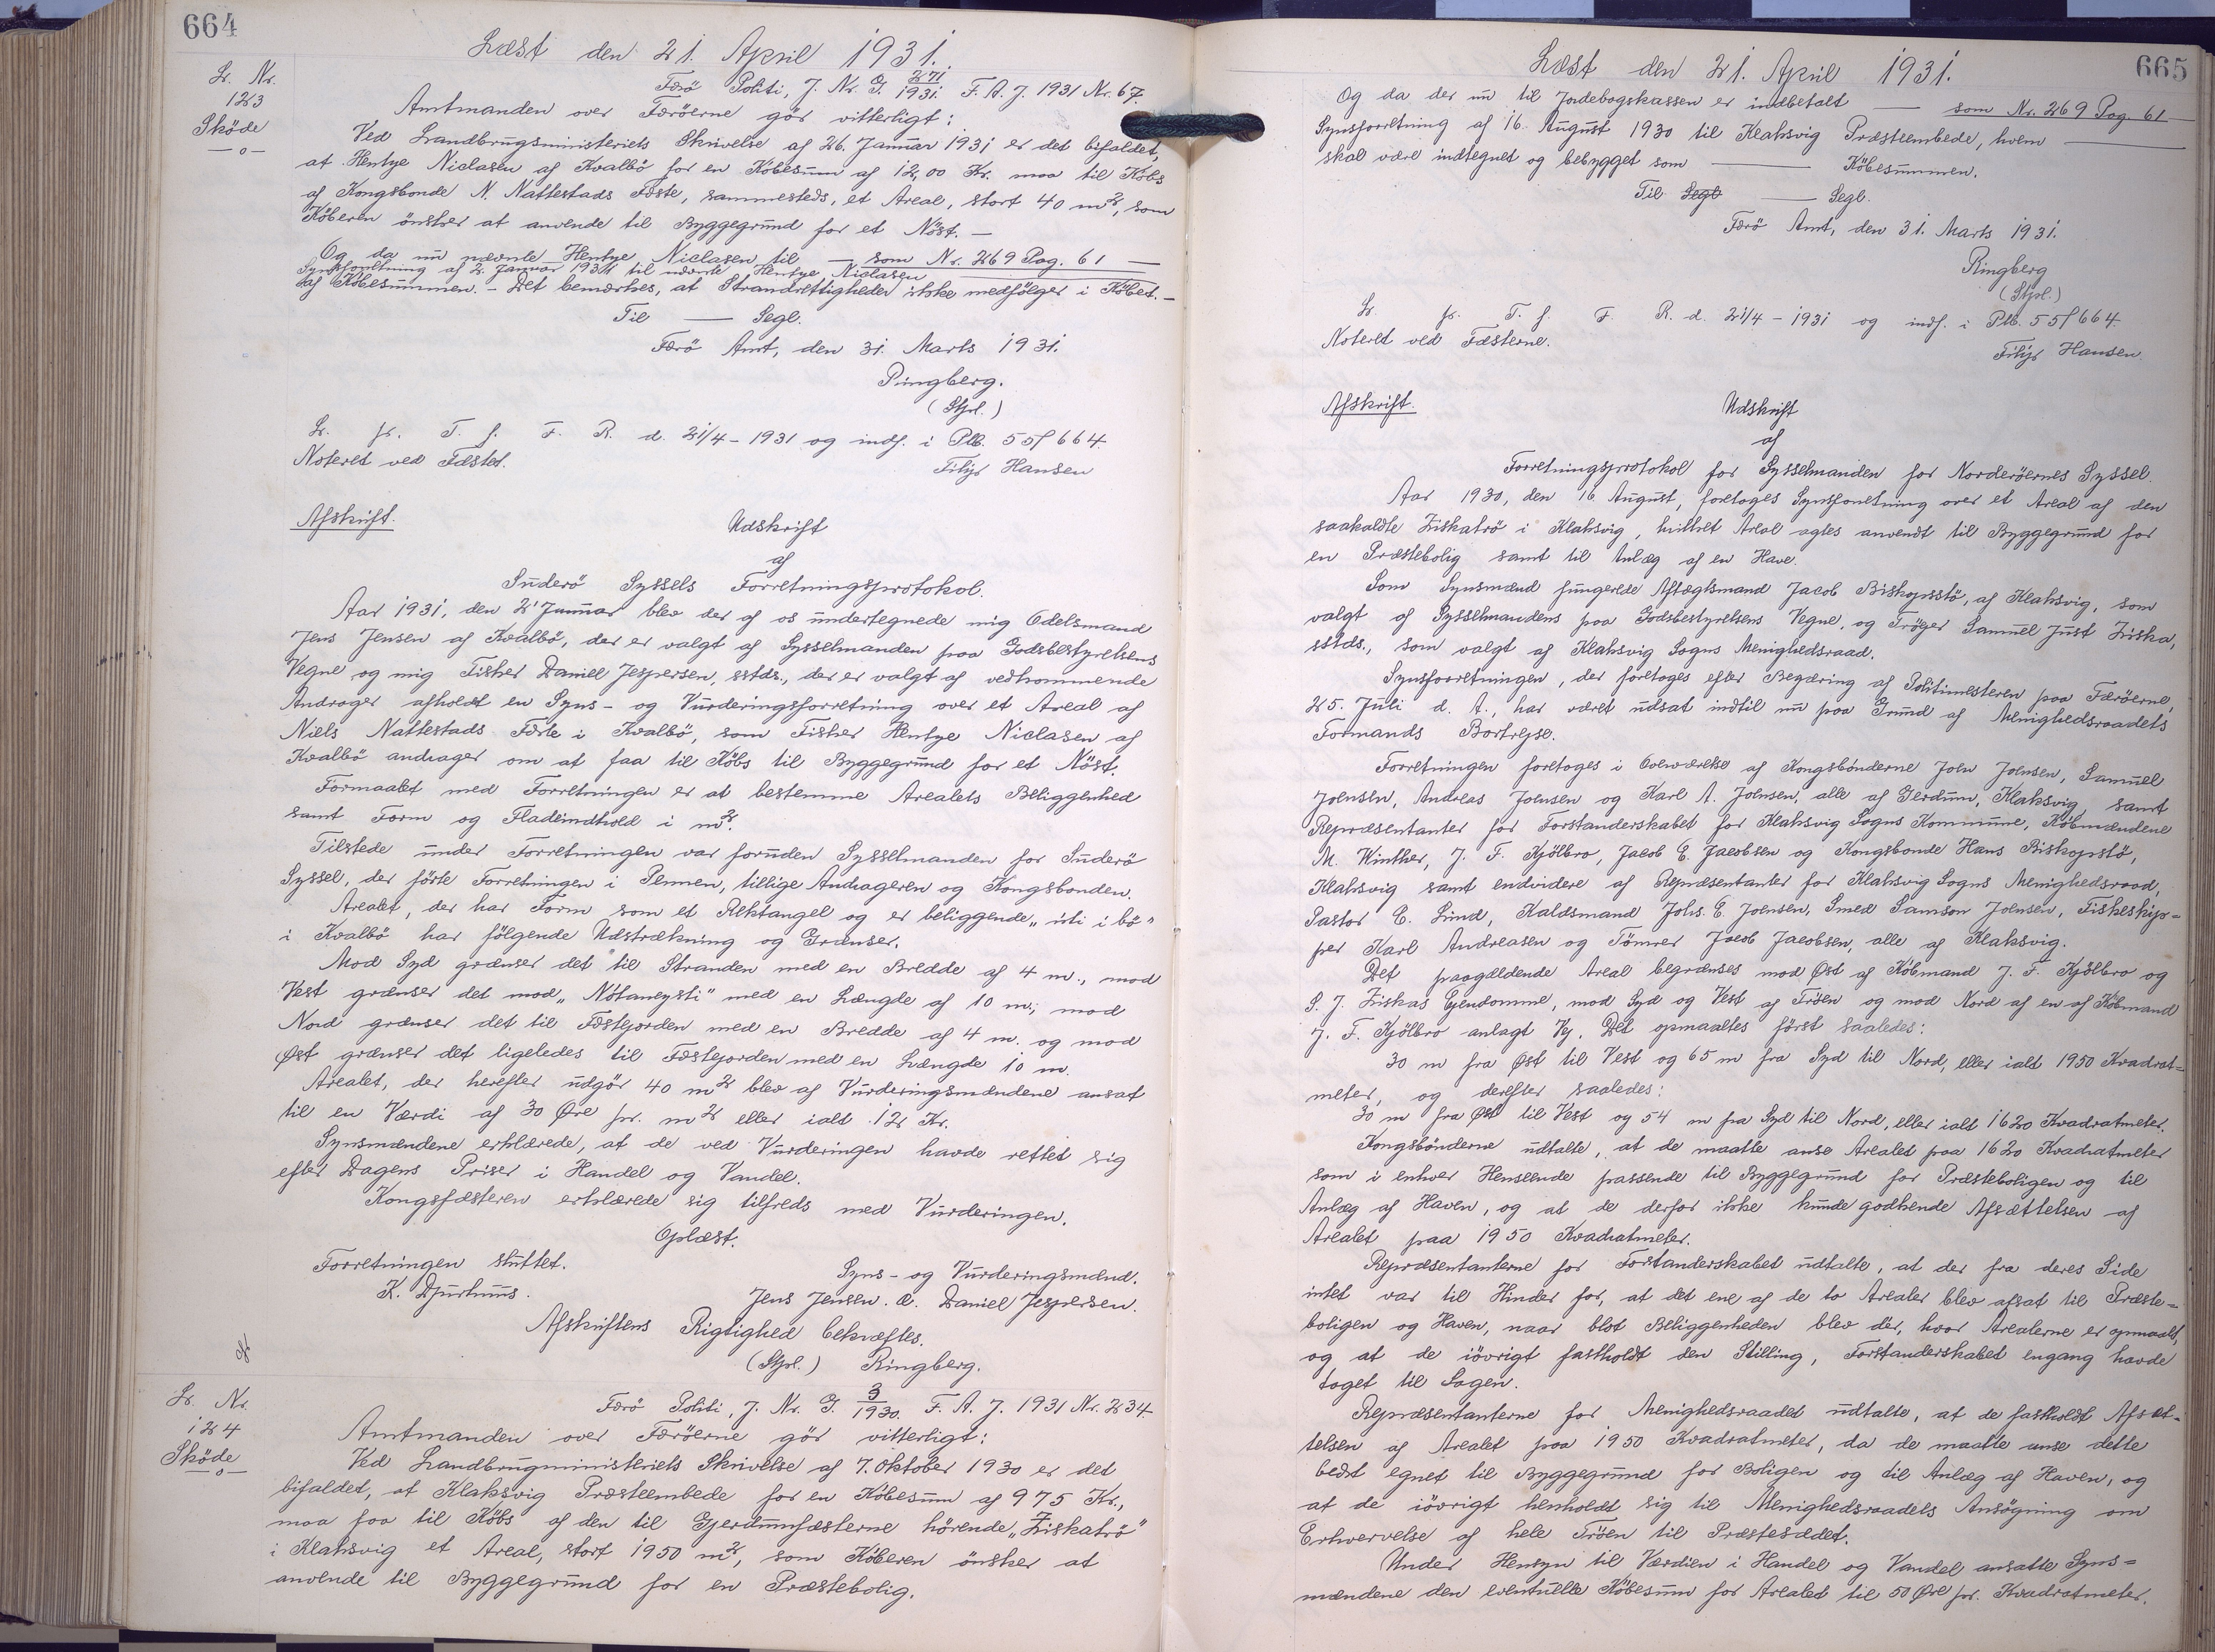 664
Læst den 21. April 1931.
Lr. Nr.
123
Sköde
—o—
Færö Politi, J. Nr. G. 271/1931. F. A. J. 1931 Nr. 67.
Amtmanden over Færöerne gör vitterligt:
Ved Landbrugsministeriets Skrivelse af 26. Januar 1931 er det bifaldet,
at Hentze Niclasen af Kvalbö for en Köbesum af 12,00 Kr. maa til Köbs
af Kongsbonde N. Nattestads Fæste, sammesteds, et Areal, stort 40 m², som
Köberen önsker at anvende til Byggegrund for et Nöst. —
Og da nu nævnte Hentze Niclasen til — som Nr. 269 Pag. 61 —
Synsforretning af 2. Januar 1931 til nævnte Hentze Niclasen
af Köbesummen. - Det bemærkes, at Strandrettigheder ikke medfölger i Köbet. —
Til — Segl.
Færö Amt, den 31. Marts 1931.
Ringberg.
(Stpl.)
Lr. fr. T. f. F. R. d. 21/4 - 1931 og indf. i Plb. 55f 664.
Noteret ved Fæstet.
Filip Hansen
Afskrift.
Udskrift
af
Suderö Syssels Forretningsprotokol.
Aar 1931, den 2' Januar blev der af os undertegnede mig Odelsmand
Jens Jensen af Kvalbö, der er valgt af Sysselmanden paa Godsbestyrelsens
Vegne og mig Fisker Daniel Jespersen, sstds., der er valgt af vedkommende
Andrager afholdt en Syns- og Vurderingsforretning over et Areal af
Niels Nattestads Fæste i Kvalbö, som Fisker Hentze Niclasen af
Kvalbö andrager om at faa til Köbs til Byggegrund for et Nöst.
Formaalet med Forretningen er at bestemme Arealets Beliggenhed
samt Form og Fladeindhold i m².
Tilstede under Forretningen var foruden Sysselmanden for Suderö
Syssel, der förte Forretningen i Pennen, tillige Andrageren og Kongsbonden.
Arealet, der har Form som et Rektangel og er beliggende „úti í bö"
i Kvalbö har fölgende Udstrækning og Grænser.
Mod Syd grænser det til Stranden med en Bredde af 4 m., mod
Vest grænser det mod „Nótaneysti" med en Længde af 10 m; mod
Nord grænser det til Fæstejorden med en Bredde af 4 m. og mod
Øst grænser det ligeledes til Fæstejorden med en Længde 10 m.
Arealet, der herefter udgör 40 m² blev af Vurderingsmændene ansat
til en Værdi af 30 Øre pr. m² eller ialt 12 Kr.
Synsmændene erklærede, at de ved Vurderingen havde rettet sig
efter Dagens Priser i Handel og Vandel.
Kongsfæsteren erklærede sig tilfreds med Vurderingen.
Oplæst.
Forretningen sluttet.
Syns- og Vurderingsmænd.
K. Djurhuus.
Jens Jensen. Daniel Jespersen.
Afskriftens Rigtighed bekræftes.
(Stpl.) Ringberg.
Lr. Nr.
124
Sköde
—o—
Færö Politi, J. Nr. G. 3/1930. F. A. J. 1931 Nr. 234.
Amtmanden over Færöerne gör vitterligt:
Ved Landbrugministeriets Skrivelse af 7. Oktober 1930 er det
bifaldet, at Klaksvig Præsteembede for en Köbesum af 975 Kr.,
maa faa til Köbs af den til Gjerdumfæsterne hörende „Ziskatrö"
i Klaksvig et Areal, stort 1950 m², som Köberen önsker at
anvende til Byggegrund for en Præstebolig.
665
Læst den 21. April 1931.
Og da der nu til Jordebogskassen er indbetalt — som Nr. 269 Pag. 61 —
Synsforretning af 16. August 1930 til Klaksvig Præsteembede, hvem —
skal være indtegnet og bebygget som — Köbesummen.
Til Segl — Segl.
Færö Amt, den 31. Marts 1931.
Ringberg
(Stpl.)
Lr. fr. T. f. F. R. d. 21/4 - 1931 og indf. i Plb. 55f 664.
Noteret ved Fæsterne.
Filip Hansen.
Afskrift.
Udskrift
af
Forretningsprotokol for Sysselmanden for Norderöernes Syssel.
Aar 1930, den 16. August, foretoges Synsforretning over et Areal af den
saakaldte Ziskatrö i Klaksvig, hvilket Areal agtes anvendt til Byggegrund for
en Præstebolig samt til Anlæg af en Have.
Som Synsmænd fungerede Aftægtsmand Jacob Biskopsstö, af Klaksvig, som
valgt af Sysselmandens paa Godsbestyrelsens Vegne, og Frøger Samuel Just Ziska,
sstds., som valgt af Klaksvig Sogns Menighedsraad.
Synsforretningen, der foretoges efter Begæring af Politimesteren paa Færöerne,
25. Juli d. A., har været udsat indtil nu paa Grund af Menighedsraadets
Formands Bortrejse.
Forretningen foretoges i Overværelse af Kongsbönderne Joen Joensen, Samuel
Joensen, Andreas Joensen og Karl A. Joensen, alle af Gerdum, Klaksvig, samt
Repræsentanter for Forstanderskabet for Klaksvig Sogns Kommune, Köbmændene
M. Winther, J. F. Kjölbro, Jacob E. Jacobsen og Kongsbonde Hans Biskopstö,
Klaksvig samt endvidere af Repræsentanter for Klaksvig Sogns Menighedsraad,
Pastor E. Lind, Kaldsmand Johs. E. Joensen, Smed Samson Joensen, Fiskeskip=
per Karl Andreasen og Tömrer Jacob Jacobsen, alle af Klaksvig.
Det paagældende Areal begrænses mod Øst af Köbmand J. F. Kjölbro og
S. J. Ziskas Ejendomme, mod Syd og Vest af Tröen og mod Nord af en af Köbmand
J. F. Kjölbro anlagt Vej. Det opmaaltes först saaledes:
30 m fra Øst til Vest og 65 m fra Syd til Nord, eller ialt 1950 Kvadrat=
meter, og derefter saaledes:
30 m fra Øst til Vest og 54 m fra Syd til Nord, eller ialt 1620 Kvadratmeter.
Kongsbönderne udtalte, at de maatte anse Arealet paa 1620 Kvadratmeter
som i enhver Henseende passende til Byggegrund for Præsteboligen og til
Anlæg af Haven, og at de derfor ikke kunde godkende Afsættelsen af
Arealet paa 1950 Kvadratmeter.
Repræsentanterne for Forstanderskabet udtalte, at der fra deres Side
intet var til Hinder for, at det ene af de to Arealer blev afsat til Præste=
boligen og Haven, naar blot Beliggenheden blev dér, hvor Arealerne er opmaalt,
og at de iövrigt fastholdt den Stilling, Forstanderskabet engang havde
taget til Sagen.
Repræsentanterne for Menighedsraadet udtalte, at de fastholdt Afsæt=
telsen af Arealet paa 1950 Kvadratmeter, da de maatte anse dette
bedst egnet til Byggegrund for Boligen og til Anlæg af Haven, og
at de iövrigt henholdt sig til Menighedsraadets Ansögning om
Erhvervelse af hele Tröen til Præstesædet.
Under Hensyn til Værdien i Handel og Vandel ansatte Syns=
mændene den eventuelle Köbesum for Arealet til 50 Øre pr. Kvadratmeter.